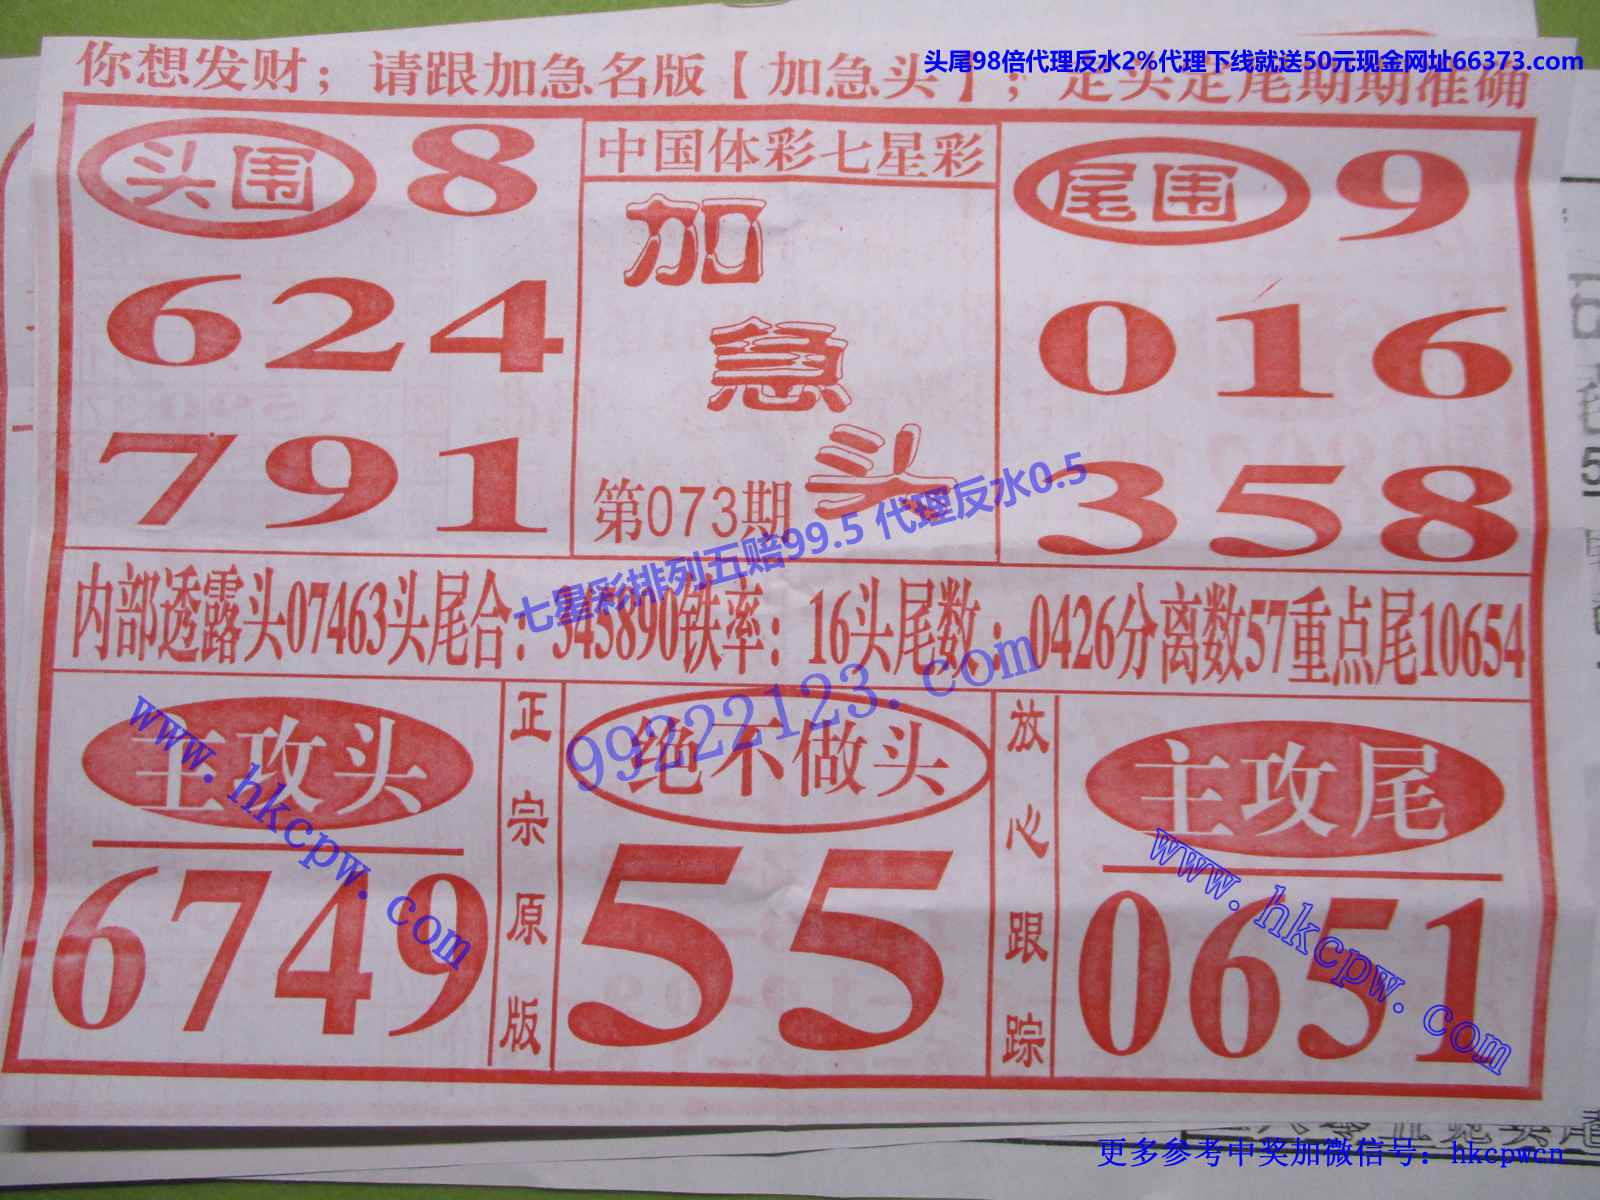 头尾98倍代理反水2%代理下线就送50元现金网址66373.com
你想发财；请跟加急名版【加急头】；定头定尾期期准确
头围 8
624
791
中国体彩七星彩
加
急
头
第073期
尾围 9
016
358
七星彩排列五赔99.5 代理反水0.5
内部透露头07463头尾合：345890铁率：16头尾数：0426分离数57重点尾10654
99222123.com
主攻头
6749
www.hkcpw.com
正宗原版
绝不做头
55
放心跟踪
主攻尾
0651
www.hkcpw.com
更多参考中奖加微信号：hkcpwcn